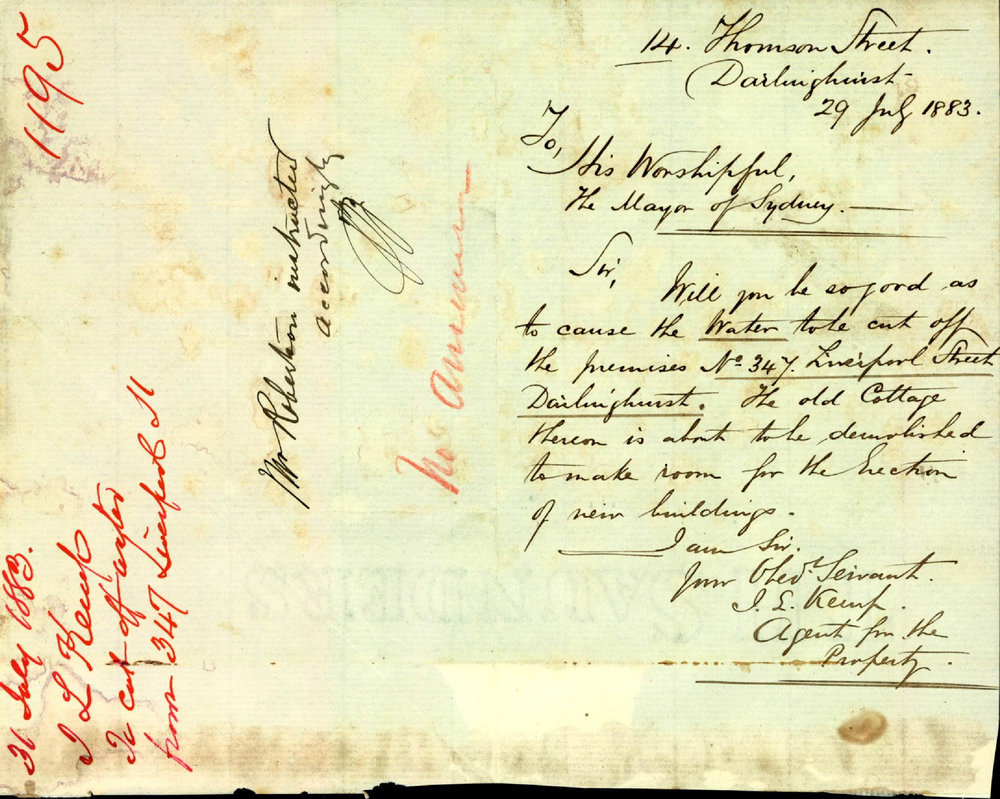 14. Thomson Street.
Darlinghurst
29 July 1883.
To,
His Worshipful,
The Mayor of Sydney.
Sir,
Will you be so good as
to cause the Water to be cut off
the premises No 347. Liverpool Street
Darlinghurst. The old Cottage
thereon is about to be demolished
to make room for the Erection
of new buildings.
I am Sir.
Your Obedt Servant.
J. L. Kemp.
Agent for the
Property.
No answer
Mr Robertson instructed
accordingly
1195
31 July 1883.
J L Kemp
To cut off water
from 347 Liverpool St